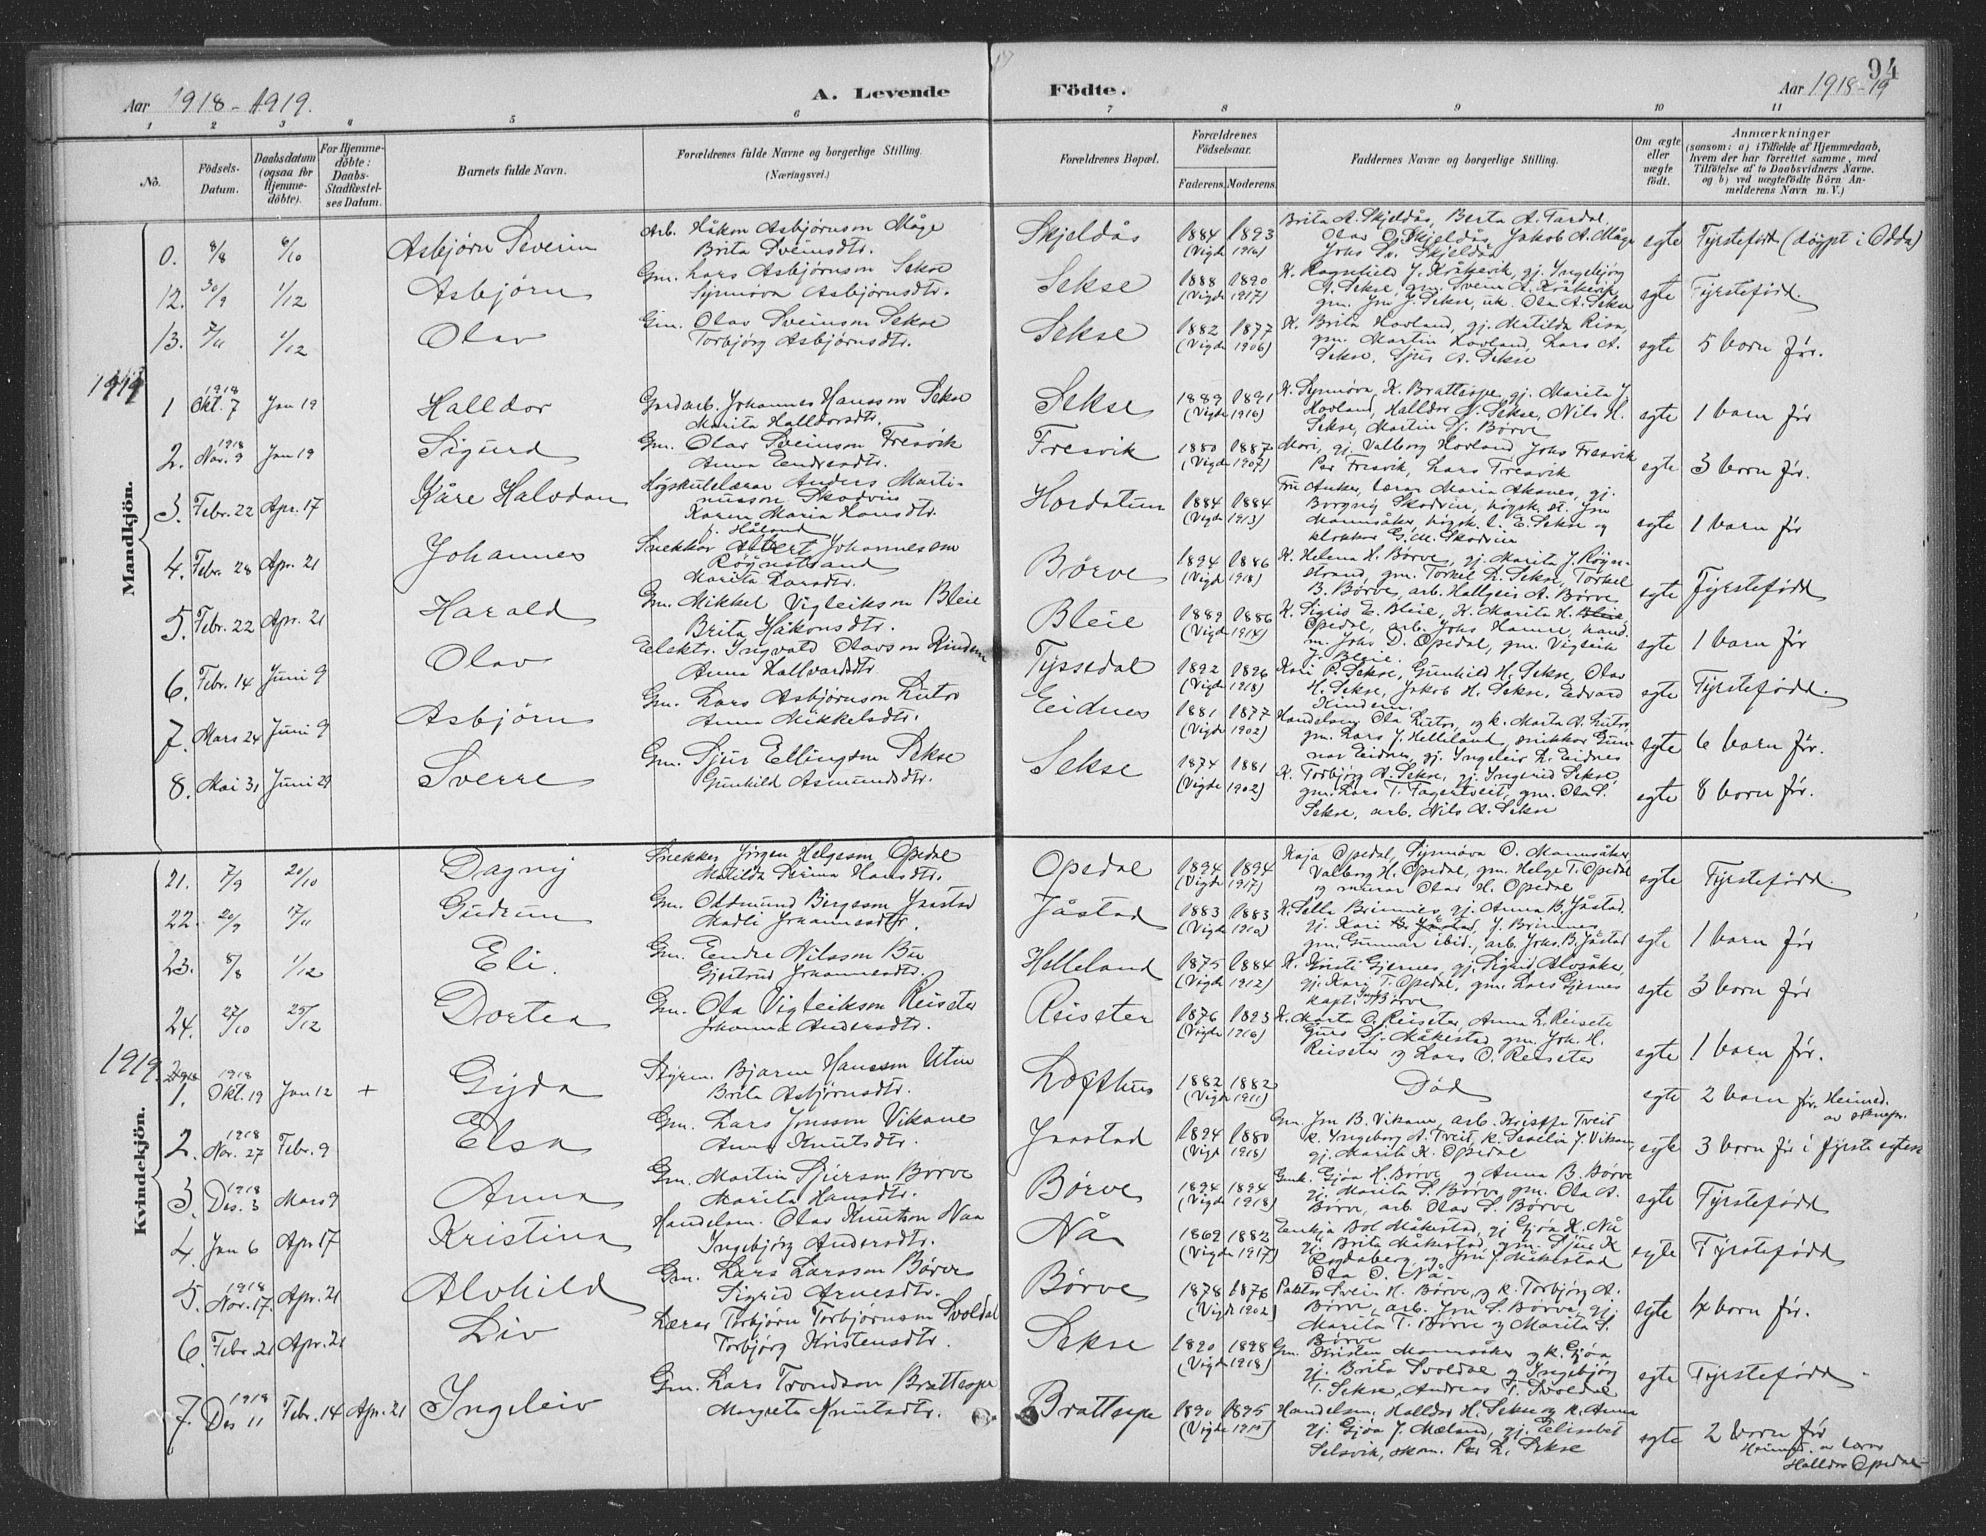 94
Aar 1918-1919.
A. Levende
Födte.
Aar 1918-19
1 2 3 4 5 6 7 8 9 10 11
No.
Födsels-
Datum.
Daabsdatum
(ogsaa for
Hjemme-
döbte).
For Hjemme-
döbte:
Daabs-
Stadfæstel-
ses Datum.
Barnets fulde Navn.
Forældrenes fulde Navne og borgerlige Stilling.
(Næringsvei.)
Forældrenes Bopæl.
Forældrenes
Födselsaar.
Faderens. Moderens.
Faddernes Navne og borgerlige Stilling.
Om ægte
eller
uægte
födt.
Anmærkninger
(saasom: a) i Tilfælde af Hjemmedaab,
hvem der har forrettet samme, med
Tilföielse af to Daabsvidners Navne.
og b) ved uægtefödte Börn An-
melderens Navn m. V.)
Mandkjön.
8/8 6/10 Asbjørn Severin
Arb. Håkon Asbjørnson Måge
Brita Sveinsdtr.
Skjeldås 1884 1893 (Vigde 1916)
Brita A. Skjeldås, Berta A. Tardal,
Olav Skjeldås, Jakob A. Måge
Johs Skjeldås
egte Fyrstefødd (døypt i Odda)
12. 30/9 1/12 Asbjørn
Gm. Lars Asbjørnson Sekse
Synnøva Asbjørnsdtr.
Sekse 1888 1890 (Vigde 1917)
K. Ragnhild J. Kråkevik, gj. Ingebjørg
A. Sekse, gm. Svein A. Kråkevik,
gm. Jon J. Sekse, uk. Ola A. Sekse
egte Fyrstefødd.
13. 7/11 1/12 Olav
Gm. Olav Sveinson Sekse
Torbjørg Asbjørnsdtr.
Sekse 1882 1877 (Vigde 1906)
K. Brita Hovland, gj. Matilda Risa,
gm. Martin Hovland, Lars A.
Sekse, Sjur A. Sekse
egte 5 born før.
1919
1 1918 Okt. 7 Jan 19 Halldor
Gardarb. Johannes Hansson Sekse
Marita Halldorsdtr.
Sekse 1889 1891 (Vigde 1916)
K. Synnøva K. Brattespe, gj. Marita J.
Hovland, Halldor Sekse, Nils H.
Sekse, Martin Sj. Børve
egte 1 barn før
2. 1918 Nov. 9 Jan 19 Sigurd
Gm. Olav Sveinson Fresvik
Anna Eendresdtr.
Fresvik 1880 1887 (Vigde 1907)
Mari, gj. Valborg Hovland, Johs Fresvik
Per Fresvik, Lars Fresvik
egte 3 born før.
3. Febr. 22 Apr. 17 Kåre Halvdan
Høgskulelærar Anders Marti-
nusson Skodvin
Karen Maria Hansdtr.
f. Håland
Hordatun 1884 1884 (Vigde 1913)
Fru Anker, lærar Maria Aksnes, gj.
Borgny Skodvin, høgsk. st. Jon
Mannsåker, høgsk. l. E. Sekse og
klokkar G. M. Skodvin
egte 1 barn før
4. Febr. 28 Apr. 21 Johannes
Snekkar Albert Johannesson
Røynstrand
Marita Larsdtr.
Børve 1894 1886 (Vigde 1918)
K. Helena H. Børve, gj. Marita J. Røyn-
strand, gm. Torkel L. Sekse, Torkel
B. Børve, arb. Hallgeir A. Børve
egte Fyrstefødd
5. Febr. 22 Apr. 21 Harald
Gm. Mikkel Vigleikson Bleie
Brita Håkonsdtr.
Bleie 1889 1886 (Vigde 1914)
K. Sigrid E. Bleie, K. Marita H.
Opedal, arb. Johs Hamre, hand.
m. Johs D. Opedal, gm. Vigleik
J. Bleie.
egte 1 barn før
6. Febr. 14 Juni 9 Olav
Elektr. Ingvald Olavson Kindem
Anna Hallvardsdtr.
Tyssedal 1892 1896 (Vigde 1918)
Kari P. Sekse, Gunhild H. Sekse, Olav
H. Sekse, Jakob H. Sekse, Edvard
Kindem.
egte Fyrstefødd.
7. Mars 24 Juni 9 Asbjørn
Gm. Lars Asbjørnson Lutro
Anna Mikkelsdtr.
Eidnes 1881 1877 (Vigde 1902)
Handelsm. Ola Lutro, og k. Marta A. Lutro
gm. Lars J. Helleland, snikkar Gun-
nar Eidnes, gj. Ingeleiv L. Eidnes
egte 6 born før.
8. Mai 31 Juni 29 Sverre
Gm. Sjur Ellingson Sekse
Gunhild Asmundsdtr.
Sekse 1874 1881 (Vigde 1902)
K. Torbjørg A. Sekse, gj. Ingerid Sekse,
gm. Lars T. Fagertveit, gm. Ola S.
Sekse, arb. Nils A. Sekse
egte 8 born før.
Kvindekjön.
21. 7/9 20/10 Dagny
Snekker Jørgen Helgeson Opedal
Matilda Serina Hansdtr.
Opedal 1894 1894 (Vigde 1917)
Kaja Opedal, Synnøva O. Mannsåker,
Valborg H. Opedal, gm. Helge T. Opedal
og murar Olav H. Opedal
egte Fyrstefødd.
22. 20/9 17/11 Gudrun
Gm. Oddmund Birgeson Jaastad
Madli Johannesdtr.
Jåstad 1883 1883 (Vigde 1910)
K. Sella Brimnes, gj. Anna B. Jåstad,
gj. Kari J. Brimnes
gm. Gunnar ibid., arb. Johs. B. Jåstad
egte 1 barn før
23. 8/8 1/12 Eli.
Gm. Endre Nilsson Bu
Gjertrud Johannesdtr.
Helleland 1875 1884 (Vigde 1912)
K. Kristi Gjernes, gj. Sigrid Alvsåker,
gj. Kari T. Opedal, gm. Lars Gjernes
kapt. Børve
egte 3 born før
24. 27/10 25/12 Dortea
Gm. Ola Vigleikson Reiseter
Johanna Andersdtr.
Reiseter 1876 1893 (Vigde 1916)
K. Marta O. Reiseter, Anna L. Reisete
Guro Sj. Måkestad gm. Joh. H.
Reiseter og Lars O. Reiseter
egte 1 barn før.
1919.
1. 1918 Okt. 19 Jan 12 + Gyda
Styrm. Bjarne Hansson Utne
Brita Asbjørnsdtr.
Lofthus 1882 1882 (Vigde 1911)
Død
egte 2 born før. Heimed.
2. 1918 Nov. 27 Febr. 9 Elsa
Gm. Lars Jonsson Vikane
Anna Knutsdtr.
Jaastad 1894 1880 (Vigde 1918)
Gm. Jon B. Vikane, arb. Kristoffer Tveit,
k. Ingeborg A. Tveit, k. Seselia J. Vikane,
gj. Marita K. Opedal
egte 3 born før i fyrste egtesk
3. 1918 Des. 3 Mars 9 Anna
Gm. Martin Sjurson Børve
Marita Hansdtr.
Børve 1894 1894 (Vigde 1918)
Gmk. Gjøa H. Børve og Anna B. Børve
gj. Marita S. Børve, gm. Ola A.
Børve, arb. Olav S. Børve
egte Fyrstefødd
4. Jan 6 Apr 17 Kristina
Handelsm. Olav Knutson Naa
Ingebjørg Andersdtr.
Nå 1869 1882 (Vigde 1917)
Enkja Bol Måkestad, gj Gjøa K. Nå
gj. Brita Måkestad, gm. Sjur K
Rogdaberg, og Jon J. Måkestad
Ola O. Nå
egte Fyrstefødd
5. 1918 Nov. 17. Apr. 21 Alvhild
Gm. Lars Larsson Børve
Sigrid Arnesdtr.
Børve 1878 1876 (Vigde 1902)
Svein H. Børve, og k. Torbjørg A.
Børve, arb. Jon S. Børve, gj.
Marita T. Børve og Marita S.
Børve
egte 4 born før.
6. Febr. 21 Apr. 21 Liv
Lærar Torbjørn Torbjørnson Svoldal
Torbjørg Kristensdtr.
Sekse 1890 1898 (Vigde 1918)
Gm. Kristen Mannsåker og k. Gjøa
gj. Brita Svoldal og Ingebjørg
T. Sekse, Andreas T. Svoldal
egte Fyrstefødd.
7. 1918 Des 11 Febr. 14 Apr. 21 Ingeleiv
Gm. Lars Trondson Brattespe
Margreta Knutsdtr.
Brattespe 1890 1895
Handelsm. Halldor H. Sekse og k. Anna
gj. Gjøa J. Mæland, gj. Elisabet
Selsvik, skom. Per L. Sekse
egte 2 born før
Heimed. av lærar
Halldor Opedal